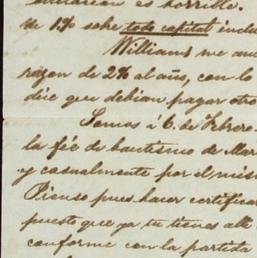 es horrible.
de 1% sobre todo capital inclu
Williams me
razon de 2% al año, con lo
dice que debian pagar otro
Somos á 6 de Febrero
la fée de bautismo de Mar
y casualmente por el mis
Pienso pues hacer certifica
puesto que ya tu tienes alli
conforme con la partida